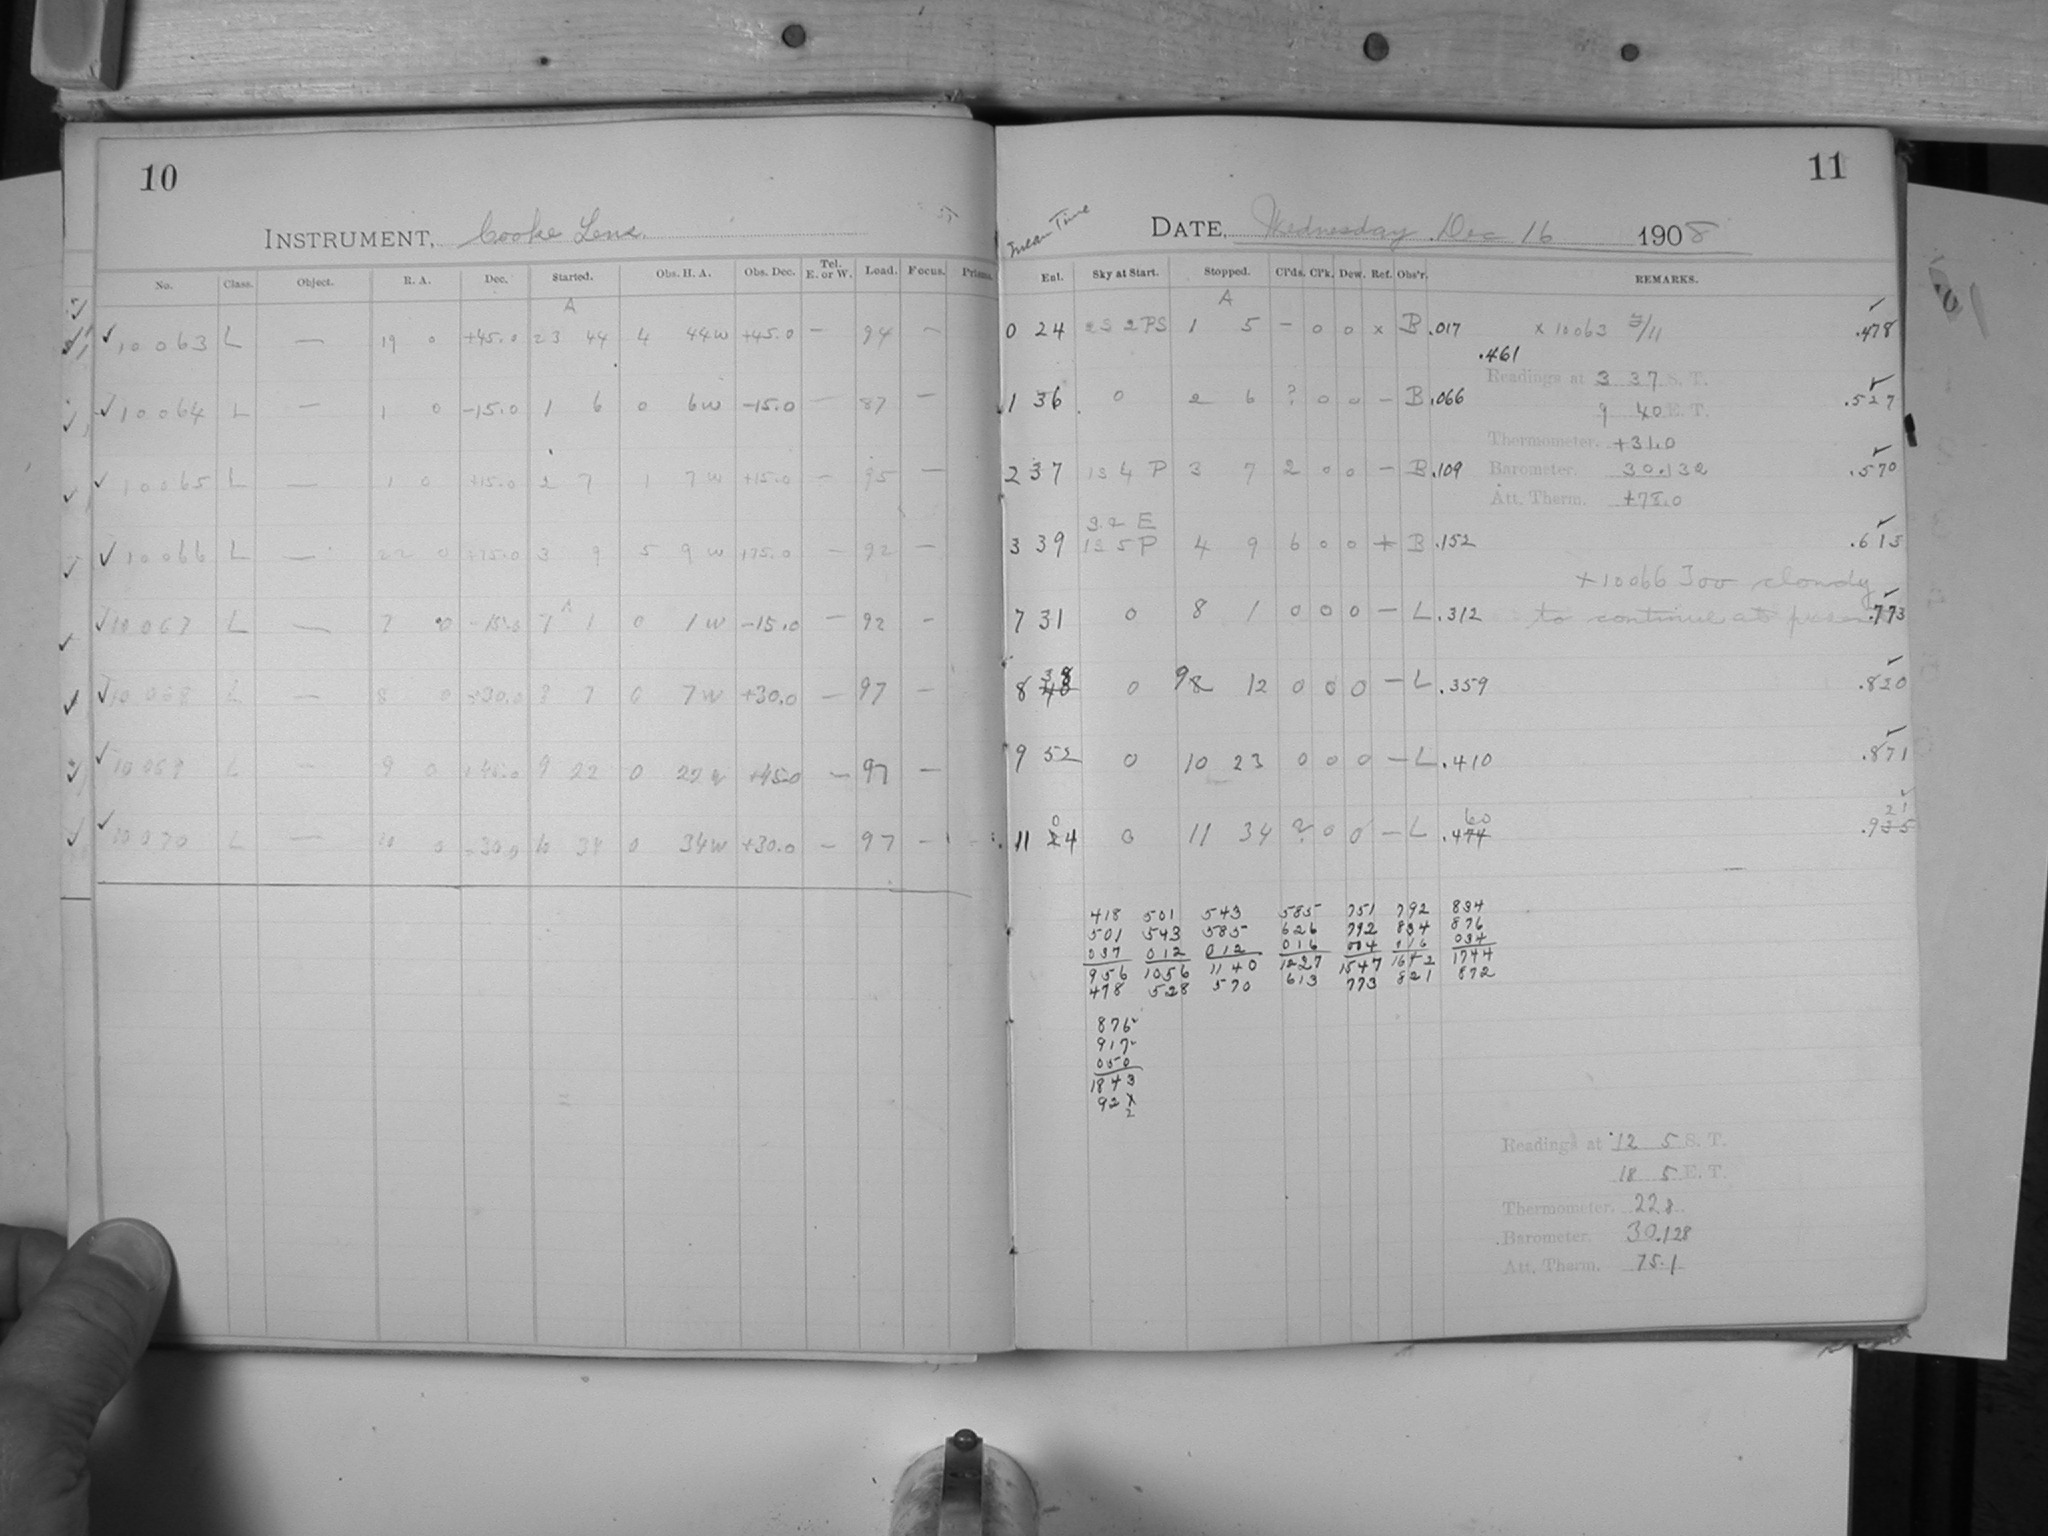 10
INSTRUMENT, Cooke Lens.
No. Class. Object. R. A. Dec. Started. Obs. H. A. Obs. Dec. Tel. E. or W. Load. Focus. Prisms.
A
10063 L — 19 0 +45.0 23 44 4 44w +45.0 — 94 —
10064 L — 1 0 -15.0 1 6 0 6w -15.0 — 87 —
10065 L — 1 0 +15.0 2 7 1 7w +15.0 — 95 —
10066 L — 22 0 +75.0 3 9 5 9w +75.0 — 92 —
A
10067 L — 7 0 -15.0 7 1 0 1w -15.0 — 92 —
10068 L — 8 0 +30.0 8 7 0 7w +30.0 — 97 —
10069 L — 9 0 +45.0 9 22 0 22w +45.0 — 97 —
10070 L — 10 0 +30.0 10 34 0 34w +30.0 — 97 —
11
Mean Time
DATE, Wednesday Dec 16 1908
Enl. Sky at Start. Stopped. Cl'ds. Cl'k. Dew. Ref. Obs'r. REMARKS.
A
0 24 PS 1 5 — 0 0 x B .017 x 10063 .478
.461
Readings at 3 37 S. T.
1 36 0 2 6 ? 0 0 — B .066 .527
9 40 E. T.
Thermometer. +31.0
2 37 13 4 P 3 7 2 0 0 — B .109 Barometer. 30.132 .570
Att. Therm. +78.0
3 2 E
3 39 13 5 P 4 9 6 0 0 + B .152 .613
+10066 Too cloudy
7 31 0 8 1 0 0 0 — L .312 to continue at present .773
38
8 40 0 9 12 0 0 0 — L .359 .820
9 52 0 10 23 0 0 0 — L .410 .871
0 60 21
11 24 0 11 34 2 0 0 — L .474 .935
418 501 543 585 751 792 834
501 543 585 626 792 834 876
037 012 012 016 004 016 034
956 1056 1140 1227 1547 1642 1744
478 528 570 613 773 821 872
876
917
050
1843
92
2
Readings at 12 5 S. T.
18 5 E. T.
Thermometer. 22.8
Barometer. 30.128
Att. Therm. 75.1